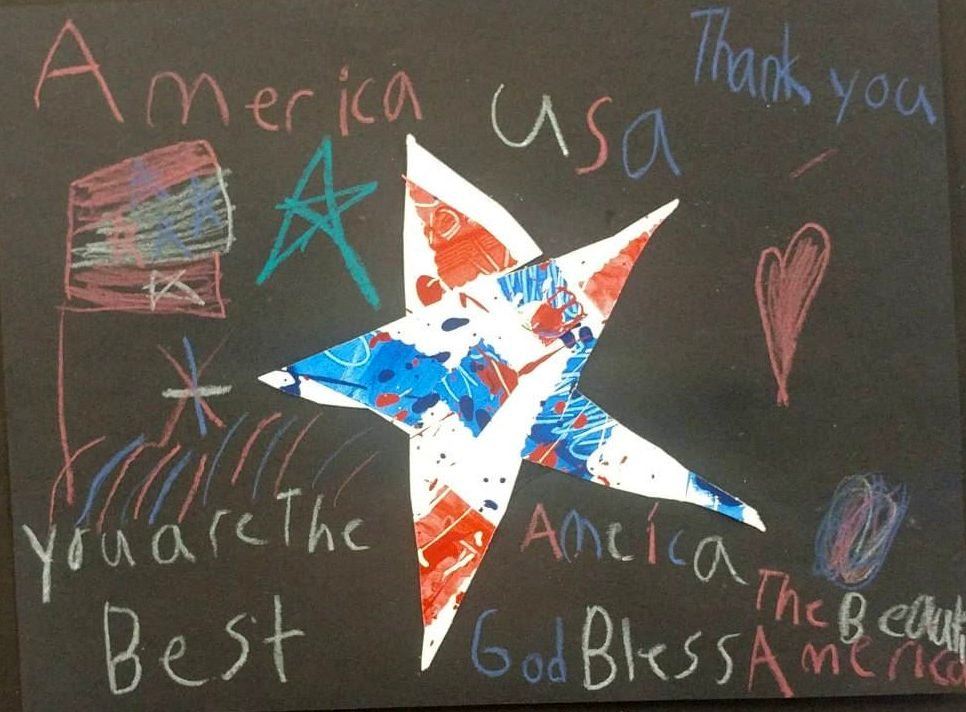 America
USa
Thank you
you are The
Best
Ameica
The Beauti
God Bless America